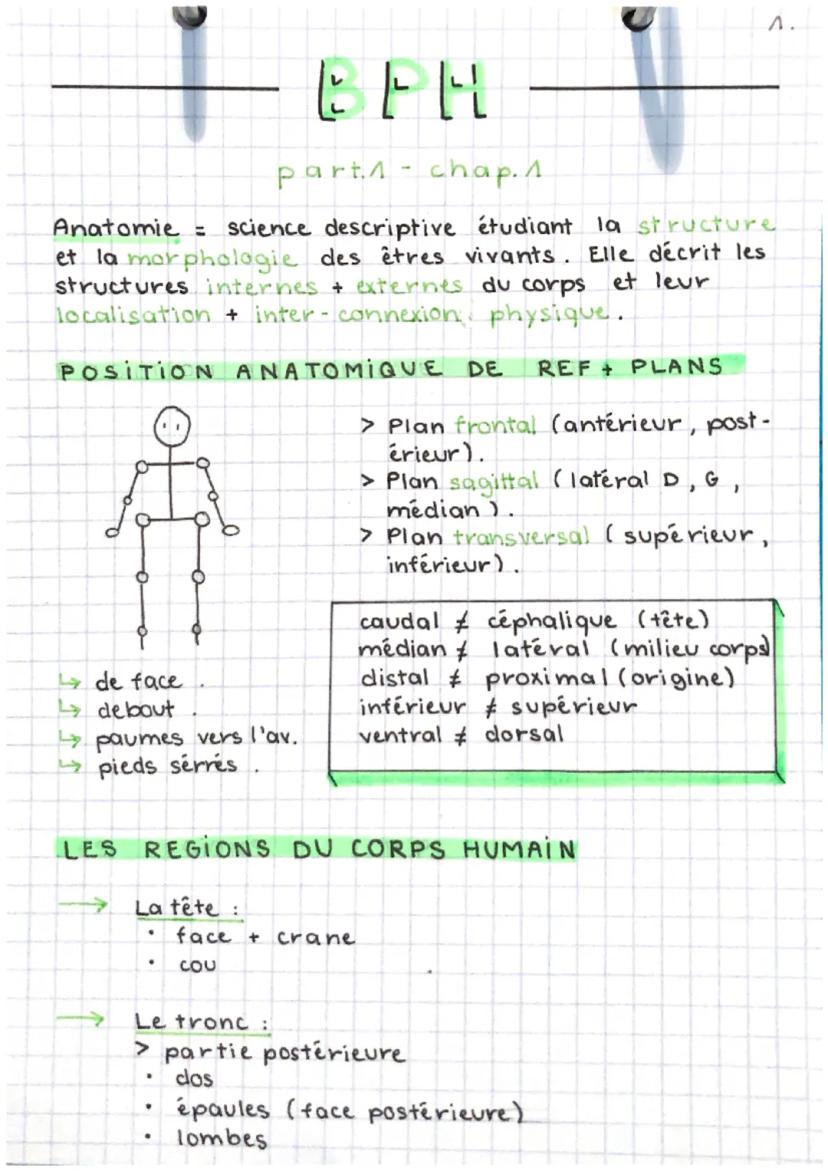 1.
BPH
part.1 - chap.1
Anatomie = science descriptive étudiant la structure
et la morphologie des êtres vivants. Elle décrit les
structures internes + externes du corps et leur
localisation + inter-connexion physique.
POSITION ANATOMIQUE DE REF + PLANS
> Plan frontal (antérieur, post-
érieur).
> Plan sagittal (latéral D, G,
médian).
> Plan transversal (supérieur,
inférieur).
caudal ≠ céphalique (tête)
médian ≠ latéral (milieu corps)
distal ≠ proximal (origine)
inférieur ≠ supérieur
ventral ≠ dorsal
↳ de face.
↳ debout.
↳ paumes vers l'av.
↳ pieds sérrés.
LES REGIONS DU CORPS HUMAIN
→ La tête :
• face + crane
• cou
→ Le tronc :
> partie postérieure
• dos
• épaules (face postérieure)
• lombes